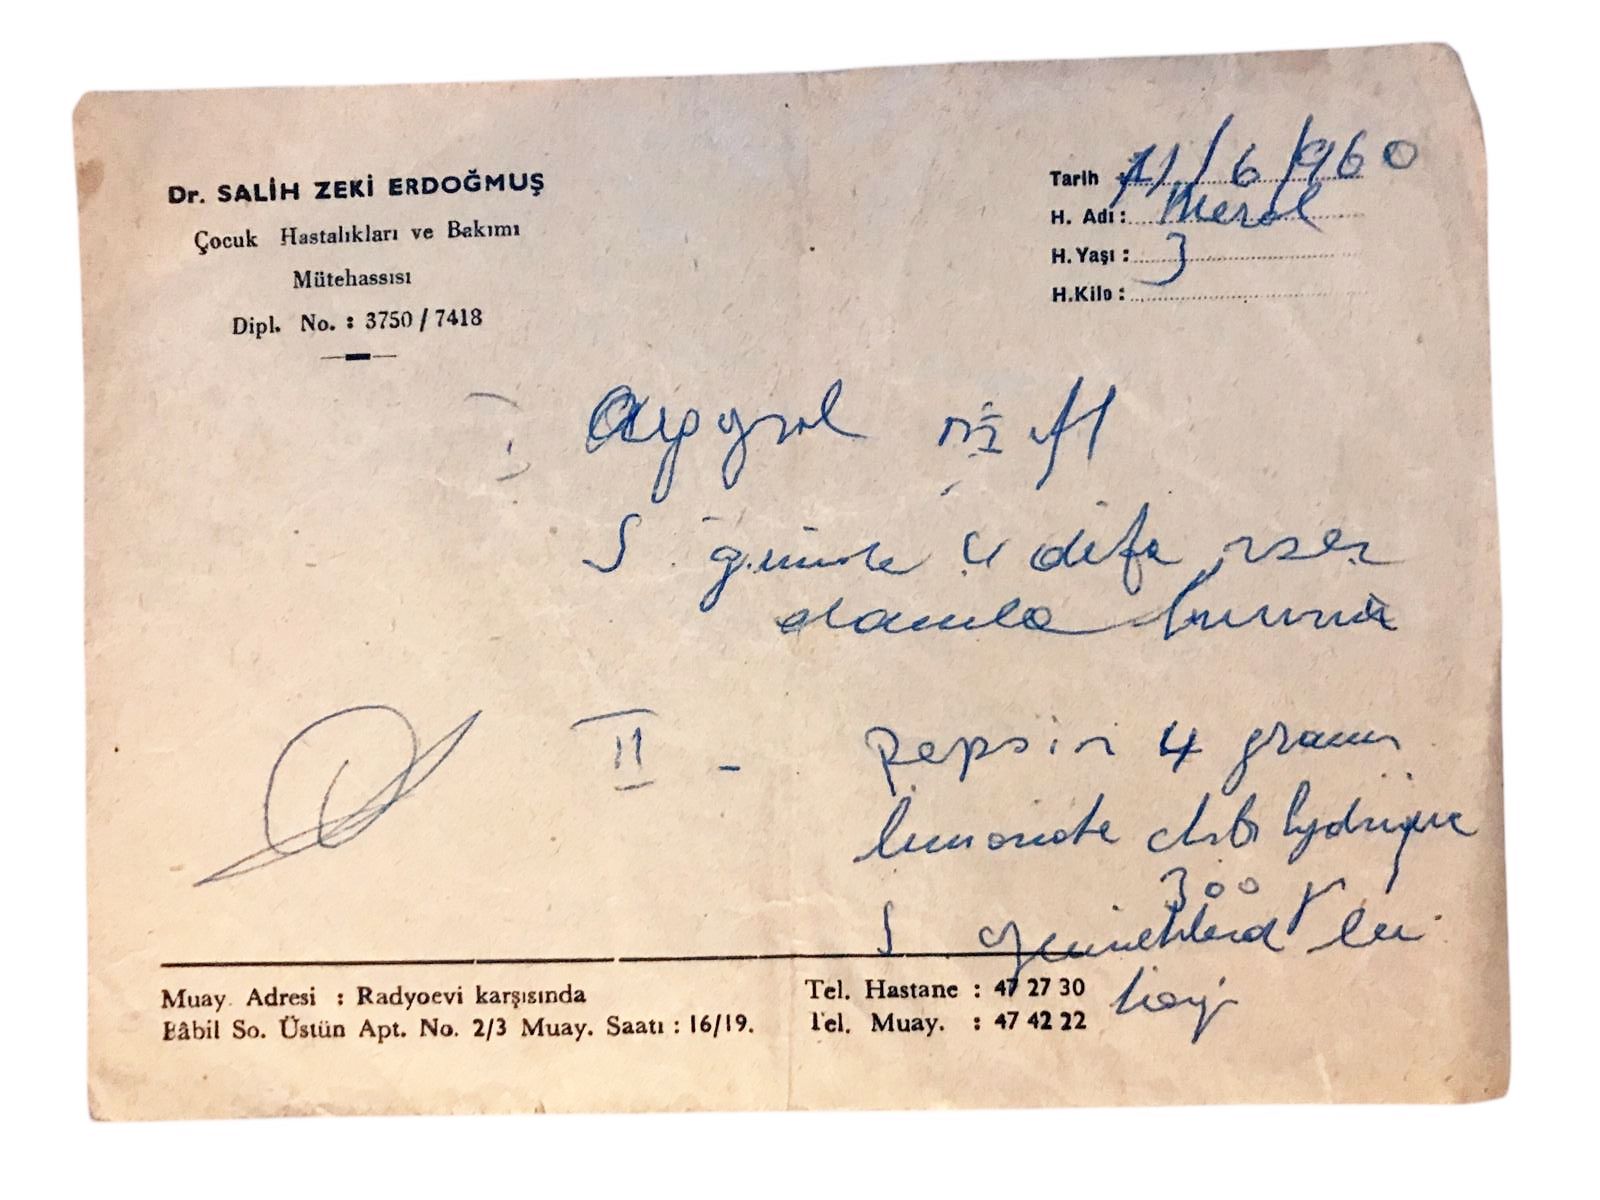 Dr. SALİH ZEKİ ERDOĞMUŞ
Çocuk Hastalıkları ve Bakımı
Mütehassısı
Dipl. No. : 3750 / 7418
Tarih 11/6/960
H. Adı : Meral
H. Yaşı : 3
H. Kilo :
I
S günde 4 defa
damla buruna
II - Pepsin 4 gram
limonate chlorhydrique
300
S
Muay. Adresi : Radyoevi karşısında
Bâbil So. Üstün Apt. No. 2/3 Muay. Saatı : 16/19.
Tel. Hastane : 47 27 30
Tel. Muay. : 47 42 22